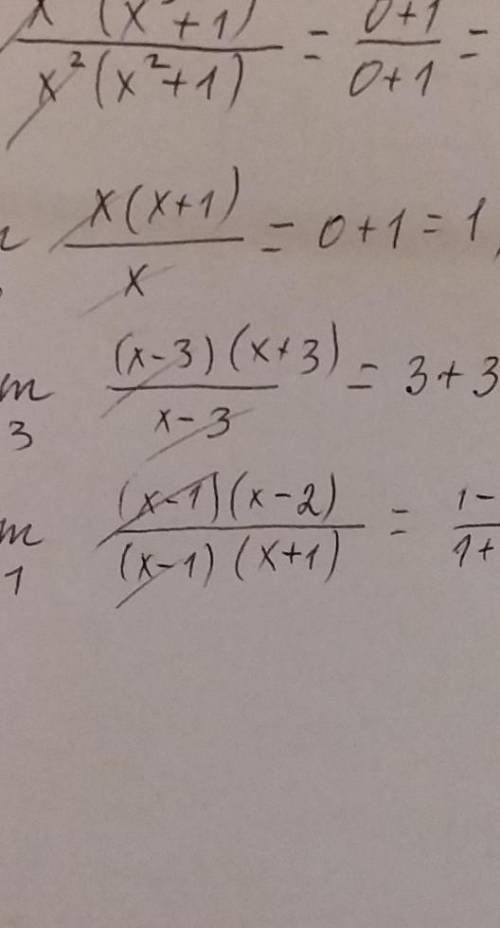 x (x³+1) / x²(x²+1) = 0+1 / 0+1 =
x(x+1) / x = 0+1=1,
m 3 (x-3)(x+3) / x-3 = 3+3
m 1 (x-1)(x-2) / (x-1)(x+1) = 1- / 1+